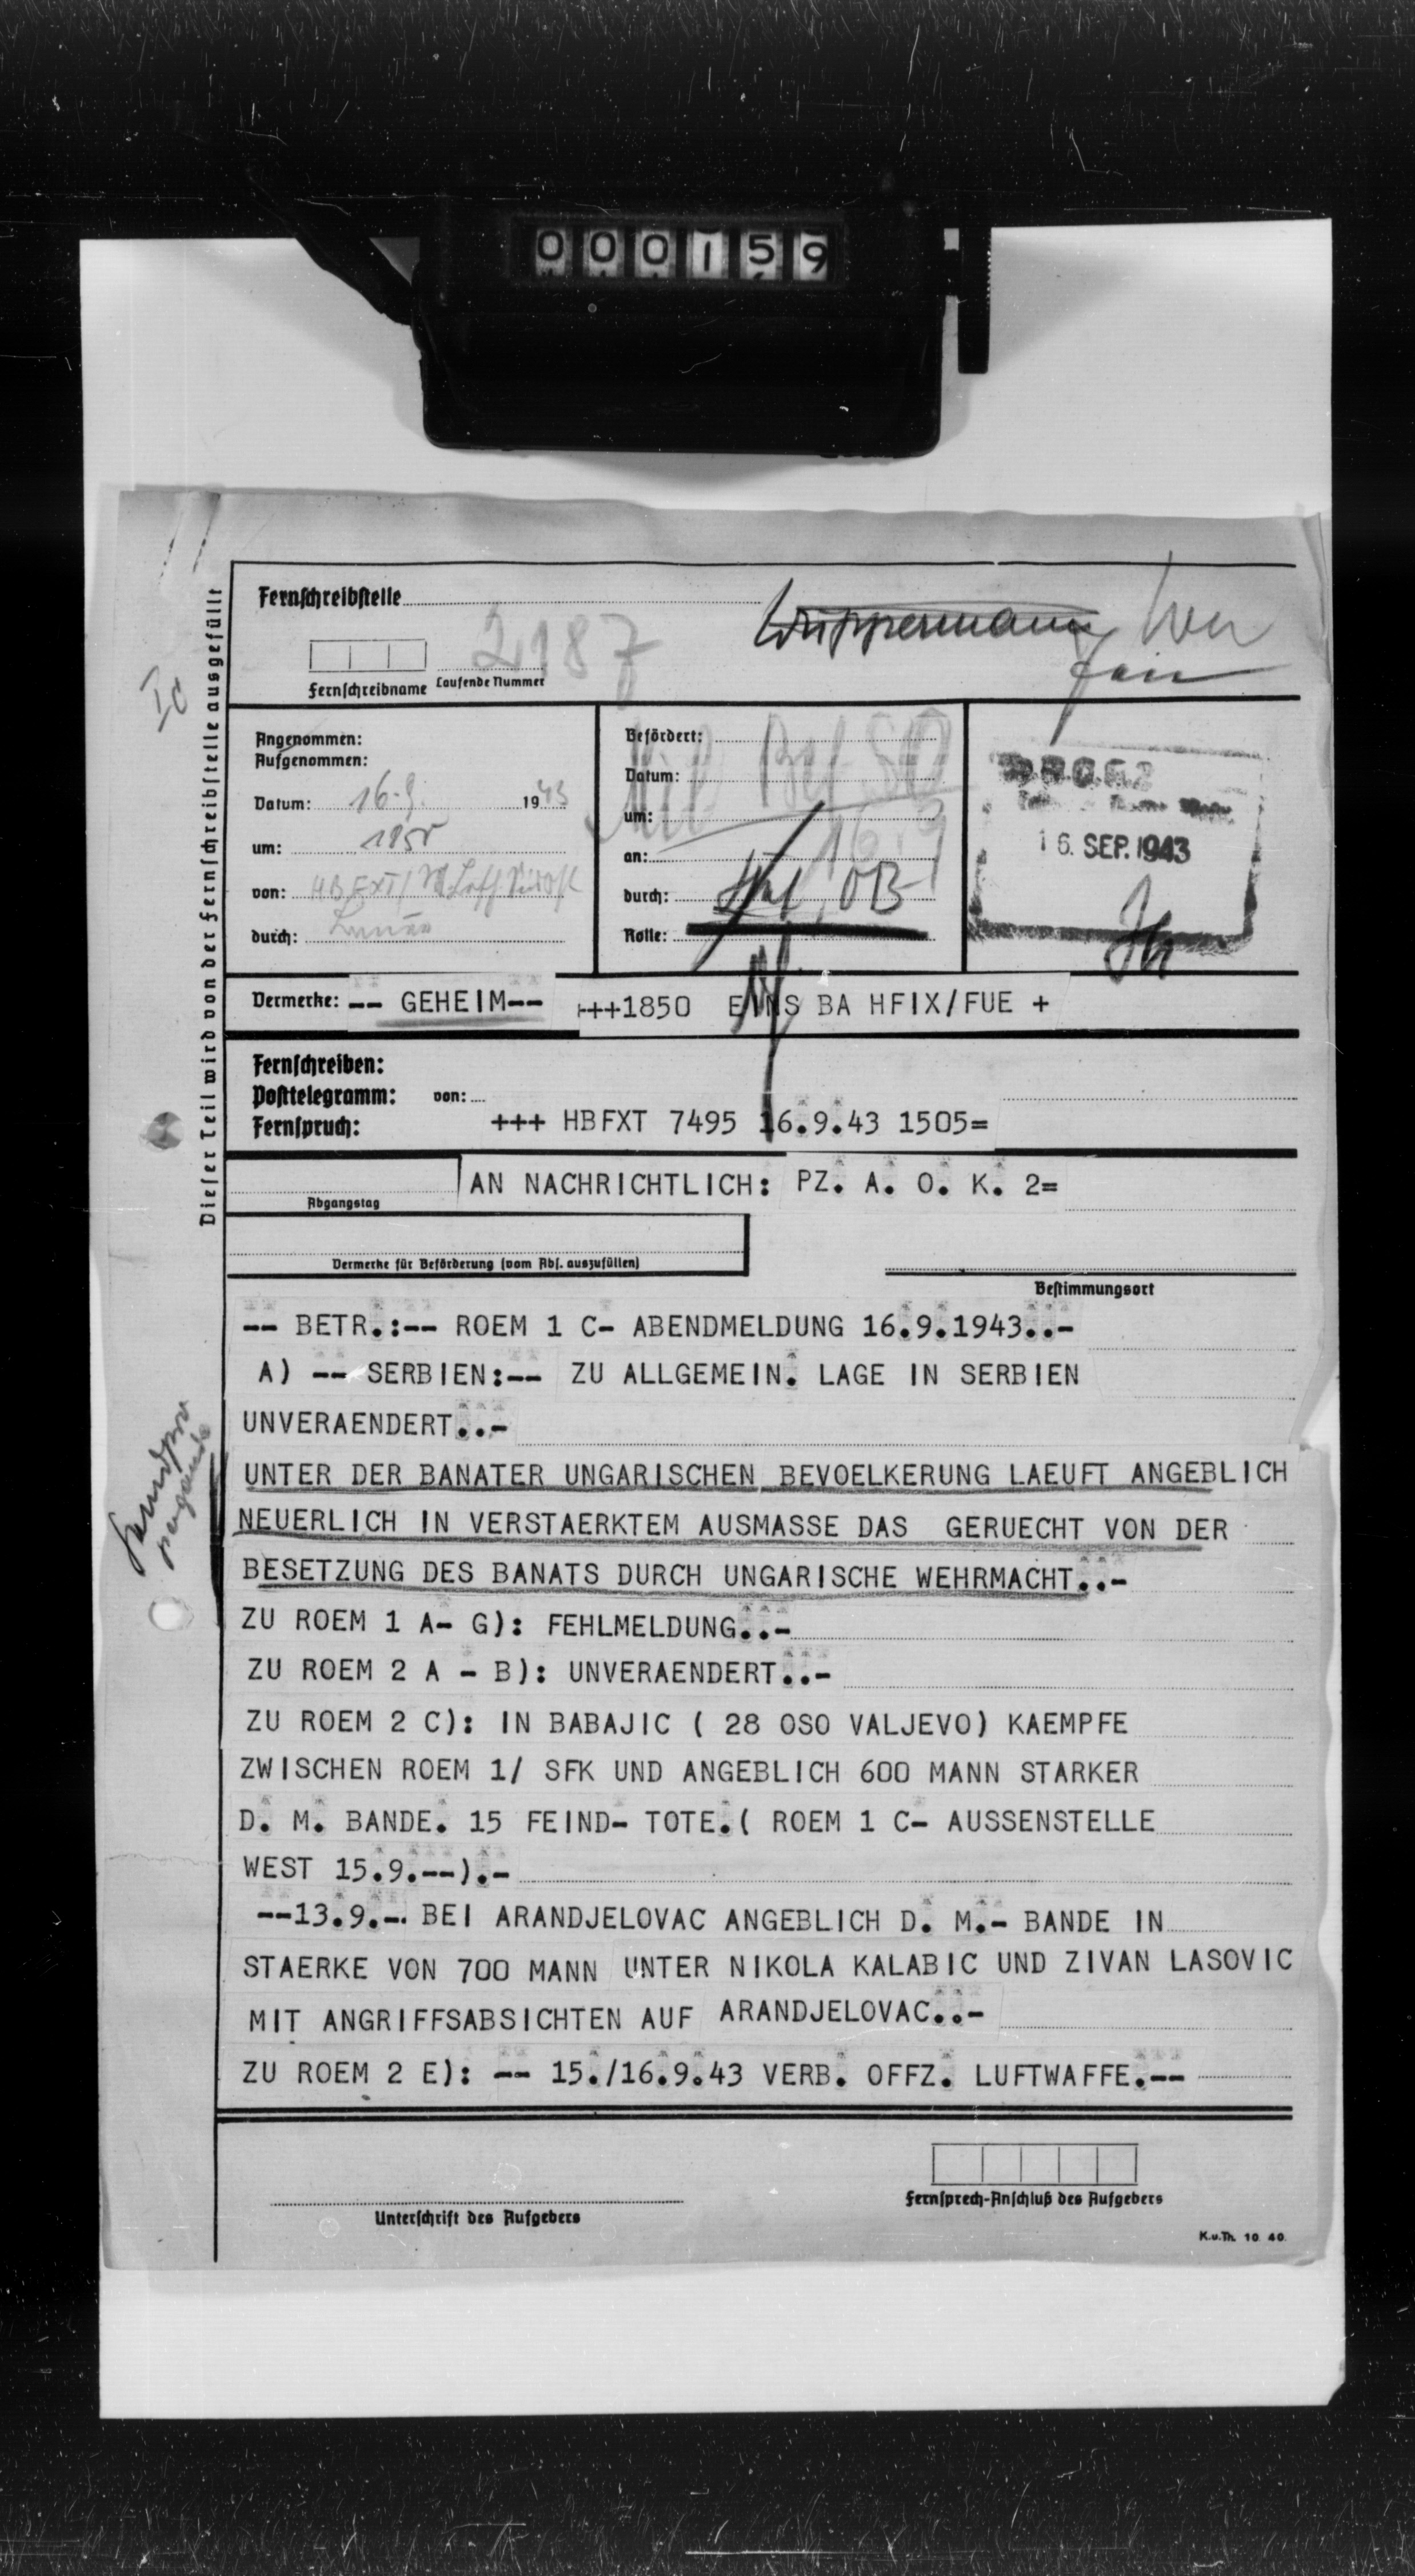 000159
Fernschreibstelle
Wuppermann
2187
Fernschreibname Laufende Nummer
Ic
Dieser Teil wird von der Fernschreibstelle ausgefüllt
Angenommen:
Aufgenommen:
Datum: 16.9. 1943
um: 1850
von: HBFXT/
durch:
Befördert:
Datum:
um:
an:
durch:
Rolle:
Mil Bef SO
16.9
OB
16. SEP. 1943
Vermerke: -- GEHEIM-- +++1850 EINS BA HFIX/FUE +
Fernschreiben:
Posttelegramm: von:
Fernspruch: +++ HBFXT 7495 16.9.43 1505=
AN NACHRICHTLICH: PZ. A. O. K. 2=
Abgangstag
Vermerke für Beförderung (vom Abs. auszufüllen)
Bestimmungsort
-- BETR.:-- ROEM 1 C- ABENDMELDUNG 16.9.1943..-
A) -- SERBIEN:-- ZU ALLGEMEIN. LAGE IN SERBIEN
UNVERAENDERT..-
UNTER DER BANATER UNGARISCHEN BEVOELKERUNG LAEUFT ANGEBLICH
NEUERLICH IN VERSTAERKTEM AUSMASSE DAS GERUECHT VON DER
BESETZUNG DES BANATS DURCH UNGARISCHE WEHRMACHT..-
ZU ROEM 1 A- G): FEHLMELDUNG..-
ZU ROEM 2 A - B): UNVERAENDERT..-
ZU ROEM 2 C): IN BABAJIC ( 28 OSO VALJEVO) KAEMPFE
ZWISCHEN ROEM 1/ SFK UND ANGEBLICH 600 MANN STARKER
D. M. BANDE. 15 FEIND- TOTE.( ROEM 1 C- AUSSENSTELLE
WEST 15.9.--).-
--13.9.-. BEI ARANDJELOVAC ANGEBLICH D. M.- BANDE IN
STAERKE VON 700 MANN UNTER NIKOLA KALABIC UND ZIVAN LASOVIC
MIT ANGRIFFSABSICHTEN AUF ARANDJELOVAC..-
ZU ROEM 2 E): -- 15./16.9.43 VERB. OFFZ. LUFTWAFFE.--
Unterschrift des Aufgebers
Fernsprech-Anschluß des Aufgebers
K.u.Th. 10. 40.